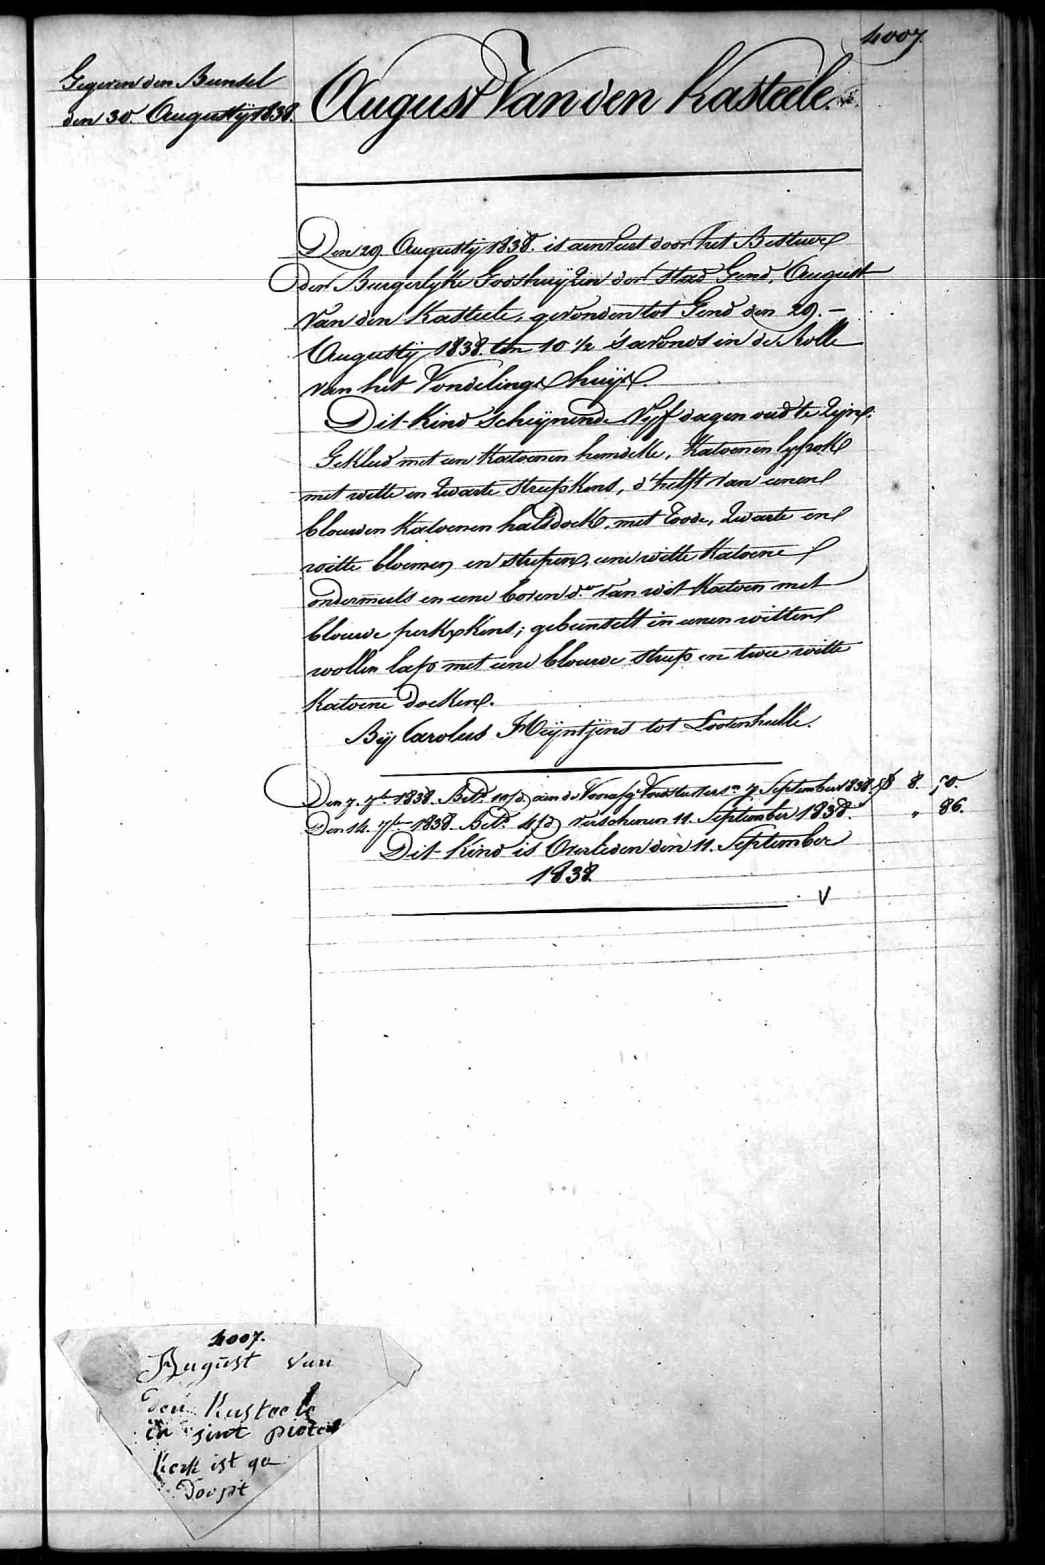 4007.
Gegeven den Bunsel
den 30. Augustij 1838.
August Van den Kasteele.
Den 29. Augustij 1838. is aenveert door het Bestuer
der Burgerlyke Godshuijzen der stad Gend, August
Van den Kasteele, gevonden tot Gend den 29. –
Augustij 1838. ten 10 ½ 's avonds in de Rolle
van het Vondelings huijs.
Dit Kind Schijnende Vyf dagen oud te zijn.
Gekleed met een Katoenen hemdeke, Katoenen lyfrok
met witte en zwarte streepkens, d'helft van eenen
blauwen Katoenen halsdoek, met roode, zwarte en
witte bloemen en streepen, eene witte Katoene
ondermuts en eene boven d.º van wit Katoen met
blauwe perkxkens; gebunselt in eenen witten
wollen lap met eene blauwe streep en twee witte
Katoene doeken.
Bij Carolus Heijntjens tot Lootenhulle.
Den 7. 7bre 1838. Bet. aen de Voorafg. 7 September 1838. ƒ 8. 50.
Den 14. 7bre 1838. Bet. verschenen 11. September 1838. „ 86.
Dit Kind is Overleden den 11. September
1838.
V
4007.
August van
den Kasteele
in sint pieters
kerk ist ge
doopt